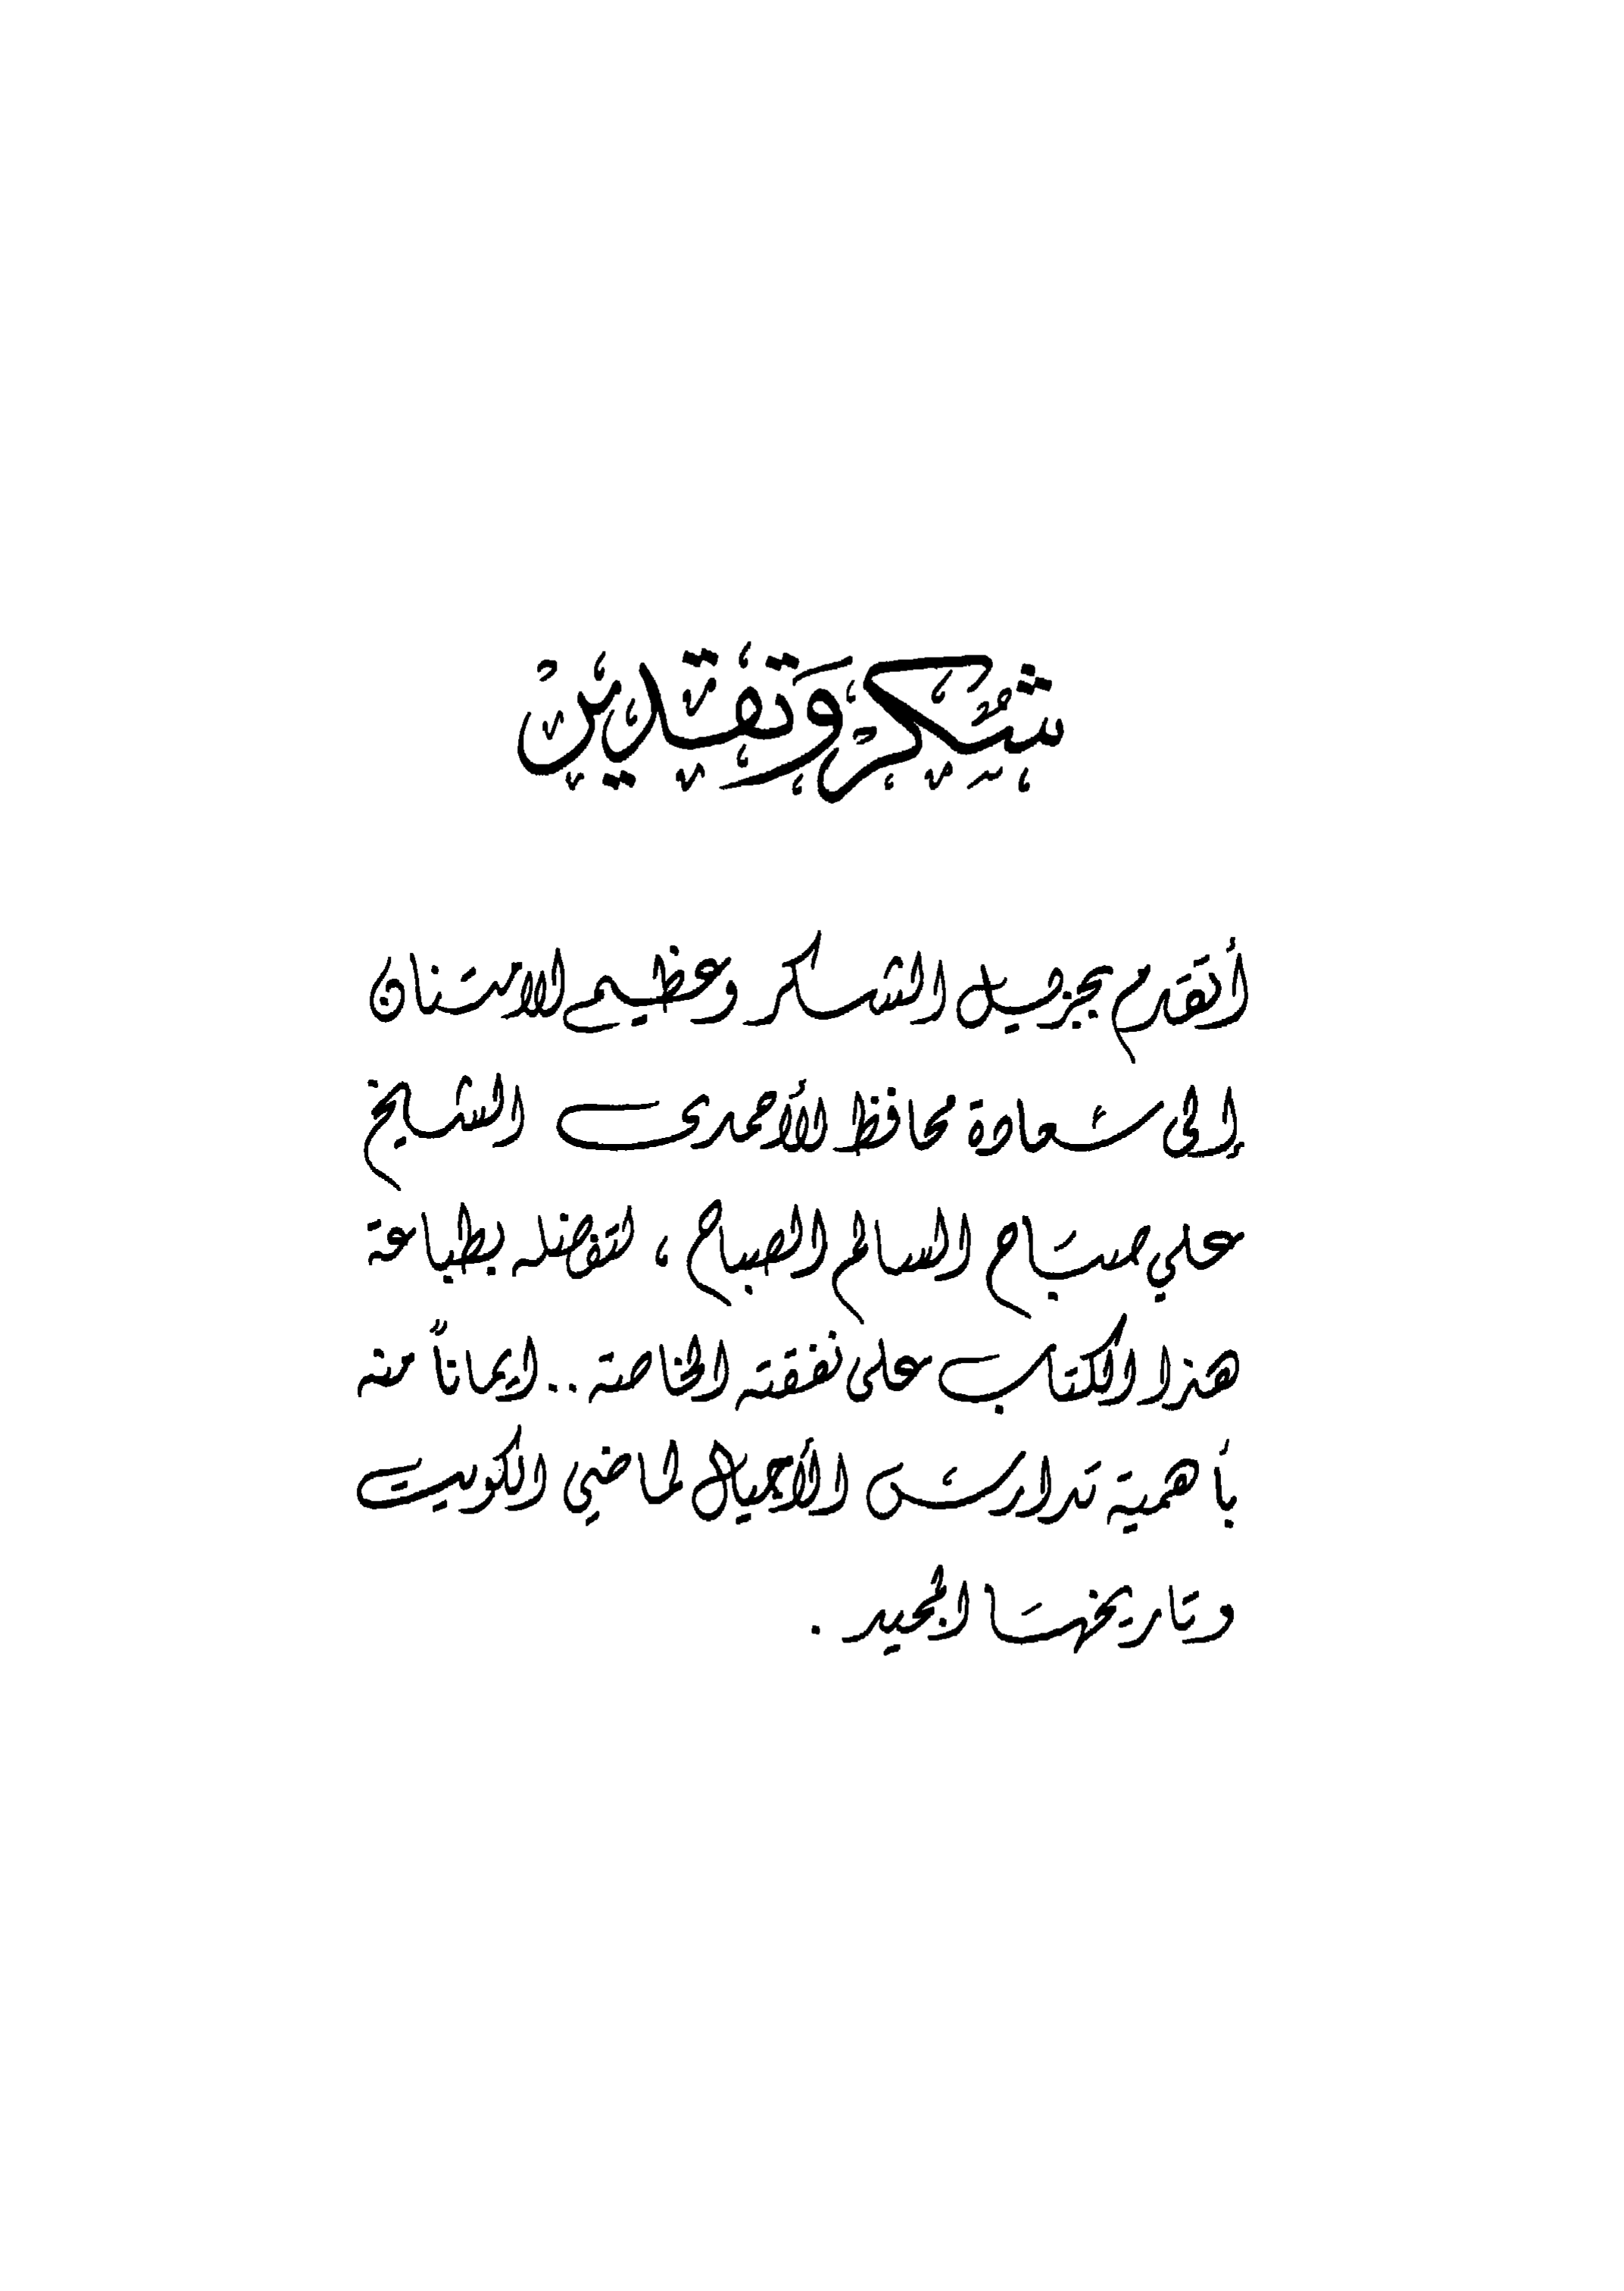 شكر وتقدير
أتقدم بجزيل الشكر وعظيم الامتنان
إلى سعادة محافظ الأحمدى الشيخ
علي صباح السالم الصباح ، لتفضله بطباعة
هذا الكتاب على نفقته الخاصة .. ايماناً منه
بأهمية تدارس الأجيال لماضي الكويت
وتاريخها المجيد .